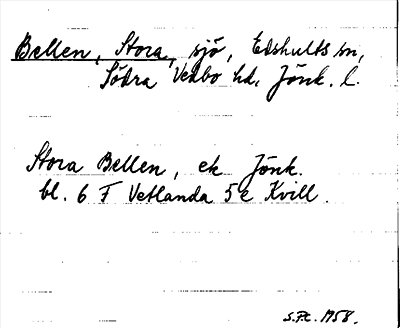 Bellen, Stora, sjö, Edshults sn,
Södra Vedbo hd, Jönk. l.
Stora Bellen, ek Jönk.
bl. 6 F Vetlanda 5 e Kvill.
S.F.C. 1958.